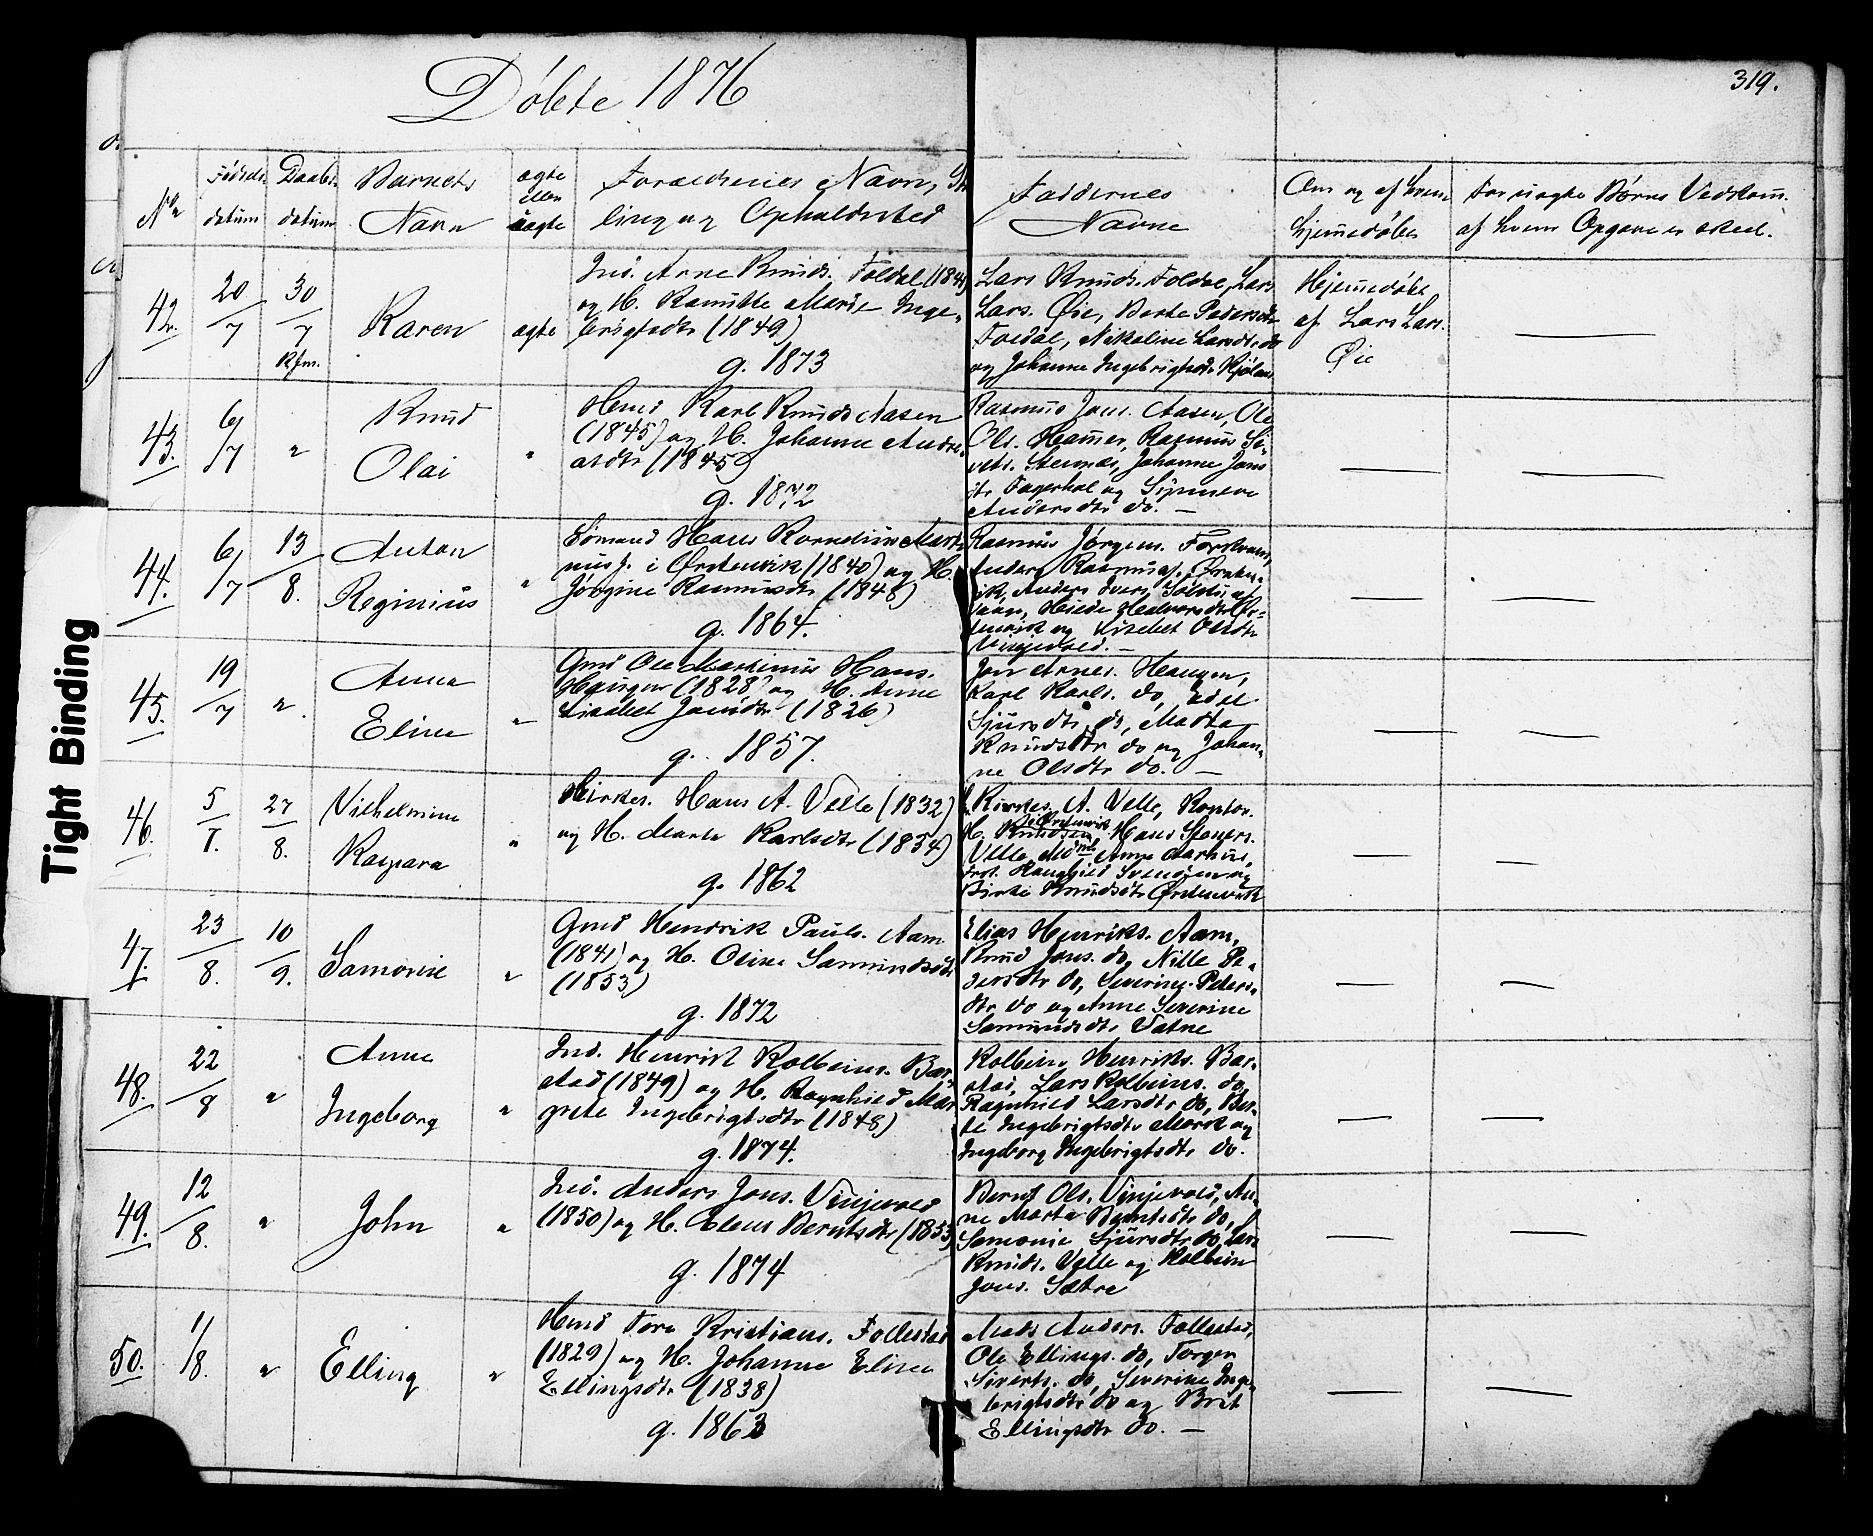 Døbte 1876
319.
No
Fødsels-
datum
Daabs-
datum
Barnets
Navn
ægte
eller
uægte
Forældrenes Navn, St
ling og Opholdssted
Faddernes
Navne
Om og af hvem
hjemmedøbt
For uægte Børns Vedkom.
af hvem Opgave er skeet.
42.
20/7
30/7
Kfm.
Karen
ægte
Ind. Arne Knuds. Foldal (1841)
og H. Marie Inge-
brigtsdtr (1849)
g. 1873
Lars Knuds. Foldal, Lars
Lars. Øie, Berte Pedersdtr
Foldal, Nikoline Larsdtr do
og Johanne Ingebrigtsdtr
Hjemmedøbt
af Lars Lars.
Øie
—
43.
6/7
"
Knud
Olai
"
Hmd Karl Knuds Aasen
(1845) og H. Johanne Andre-
asdtr (1845)
g. 1872
Rasmus Jons. Aasen, Ole
Ols. Hamer, Rasmus Si-
verts. Johanne Jons
dtr og Synneve
Andersdtr do. —
—
—
44.
6/7
13/8.
Anton
Reginius
"
Sømand Hans Kornelius Mart-
i Ørstenvik (1840) og H.
Jørgine Rasmusdtr (1848)
g. 1864.
Rasmus Jørgens.
Anders
og Lisebet Olsdtr
Vinjevold. —
—
—
45.
19/7
"
Anna
Eline
"
Gmd Ole Martinus Hans.
Haugen (1828) og H. Anne
Lisabet Jonsdtr (1826)
g. 1857.
Jon Arnes. Haugen,
Karl Karls. do,
Sjursdtr do, Marta
Knudsdtr do og Johan-
ne Olsdtr do. —
—
—
46.
5/7.
27/8.
Vilhelmine
Kaspara
"
Kirkes. Hans A. Velle (1832)
og H. Marte Karlsdtr (1834)
g. 1862
Kirkes. A. Velle,
H. Knudsen, Hans
Velle, Anne
Ragnhild Svendsen og
Knudsdtr Ørstenvik
—
—
47.
23/8.
10/9.
Samorine
"
Gmd Hendrik Pauls. Aam
(1841) og H. Oline Samundsdtr
(1853)
g. 1872
Elias Henriks. Aam,
Knud Jons. do, Nille Pe-
dersdtr do, Severine Peders-
dtr do og Anne Severine
Samundsdtr Vatne
—
—
48.
22/8
"
Anne
Ingeborg
"
Ind. Henrik Kolbeins. Bar-
stad (1849) og H. Ragnhild Mar-
grete Ingebrigtsdtr (1848)
g. 1874.
Kolbein Henriks. Bar-
stad, Lars Kolbeins. do,
Ragnhild Larsdtr do, Ber-
te Ingebrigtsdtr Mork og
Ingeborg Ingebrigtsdtr do.
—
—
49.
12/8.
"
John
"
Ind. Anders Jons. Vinjevold
(1850) og H. Elen Berntsdtr (1853)
g. 1874
Bernt Ols. Vinjevold, An-
ne Marta Berntsdtr do,
Samonie Sjursdtr do, Lars
Knuds. Velle og Kolbein
Jons. Sætre
—
—
50.
1/8.
"
Elling
"
Hmd Tore Kristians. Follestad
(1829) og H. Johanne Eline
Ellingsdtr (1838)
g. 1863
Mads Anders. Follestad,
Ole Ellings. do, Torger
Siverts. do, Severine Inge-
brigtsdtr do og Brit
Ellingsdtr do. —
—
—
Tight Binding